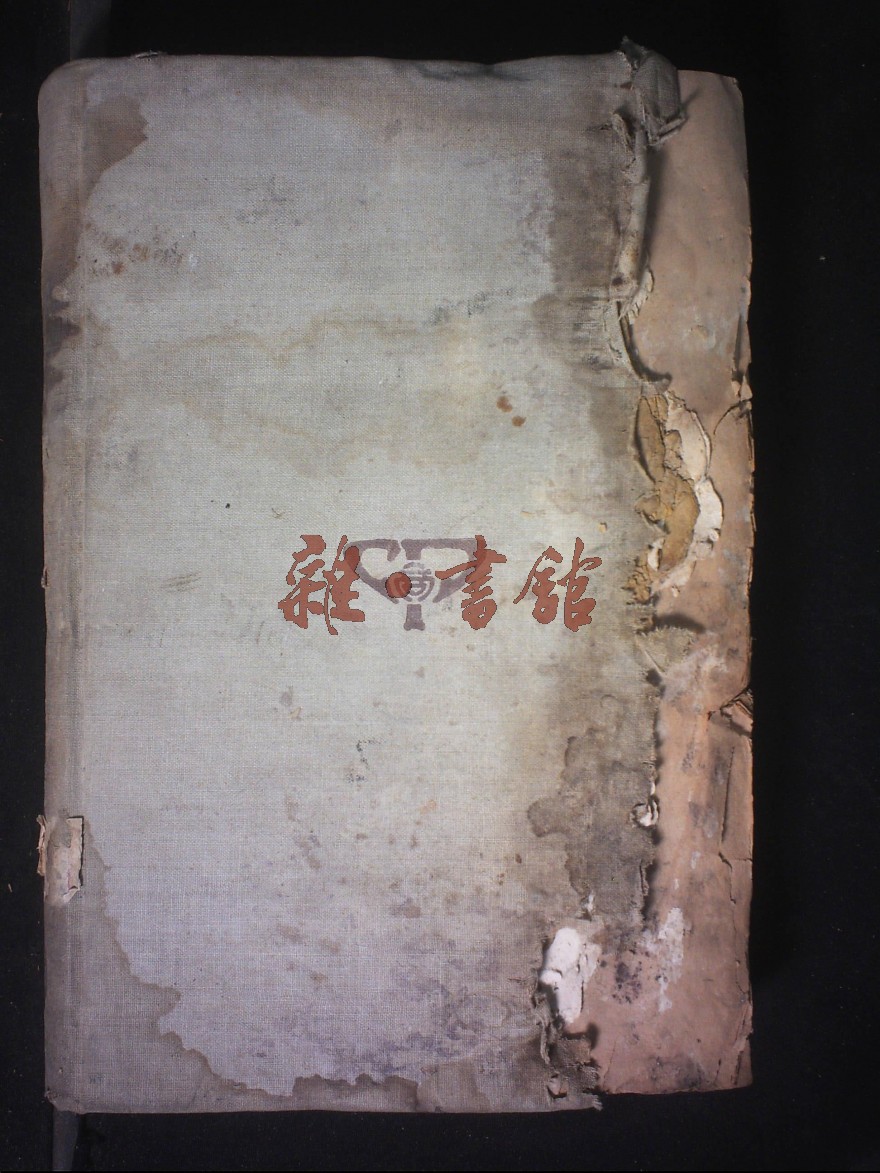 雜書館